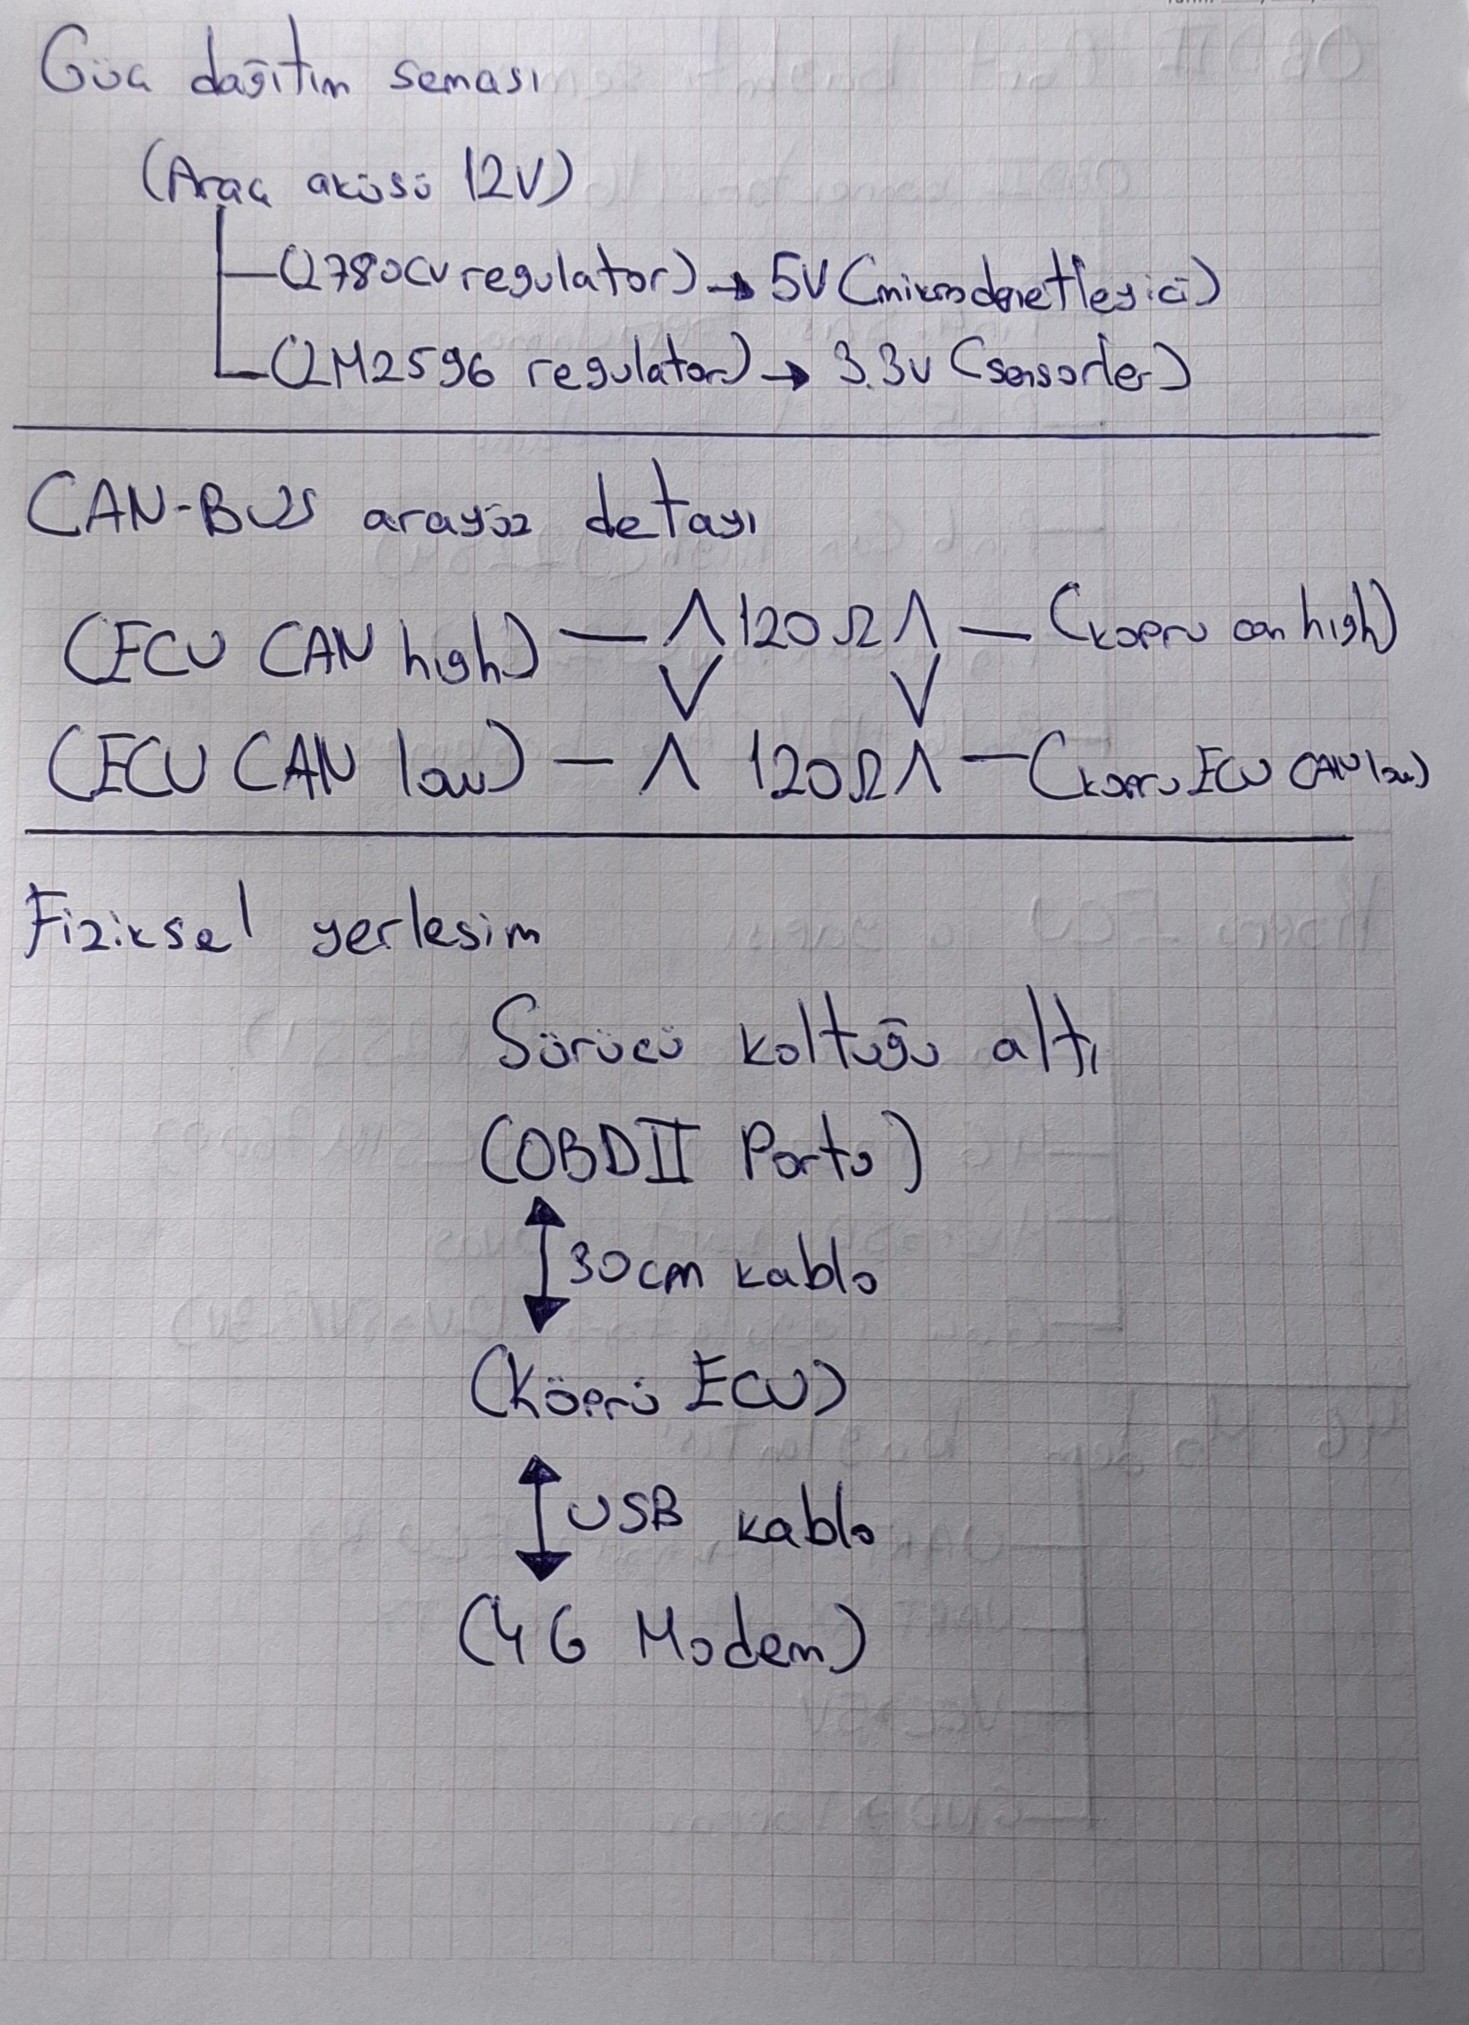 Güç dağıtım seması
(Araç aküsü 12V)
(L780CV regulator) → 5V (mikrodenetleyici)
(LM2596 regulator) → 3.3V (sensorler)
CAN-BUS arayüz detayı
(ECU CAN high) — Λ 120Ω Λ — (köprü can high)
V V
(ECU CAN low) — Λ 120Ω Λ — (köprü ECU CAN low)
Fiziksel yerlesim
Sürücü koltuğu altı
(OBDII Portu)
30cm kablo
(Köprü ECU)
USB kablo
(4G Modem)